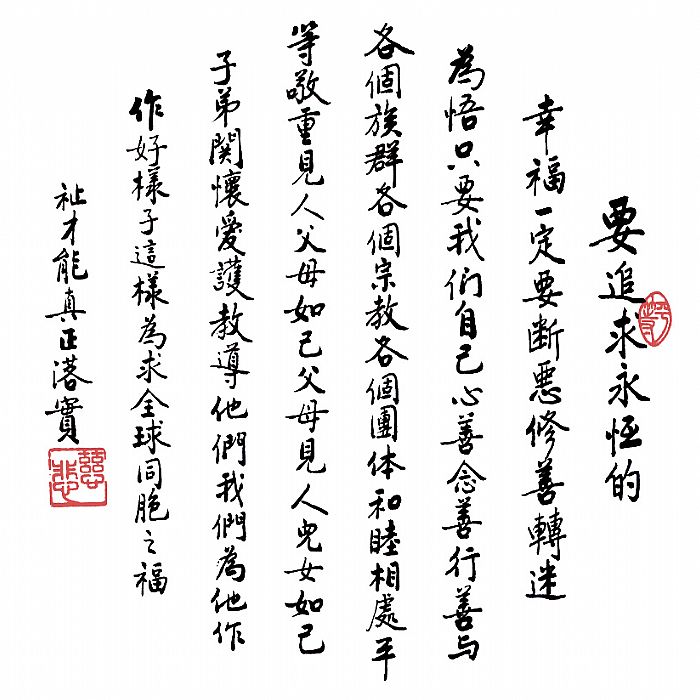 要追求永恆的
幸福一定要断惡修善轉迷
為悟只要我们自己心善念善行善与
各個族群各個宗教各個團体和睦相處平
等敬重見人父母如己父母見人兒女如己
子弟関懷愛護教導他們我們為他作
作好樣子這樣為求全球同胞之福
祉才能真正落實
慈悲